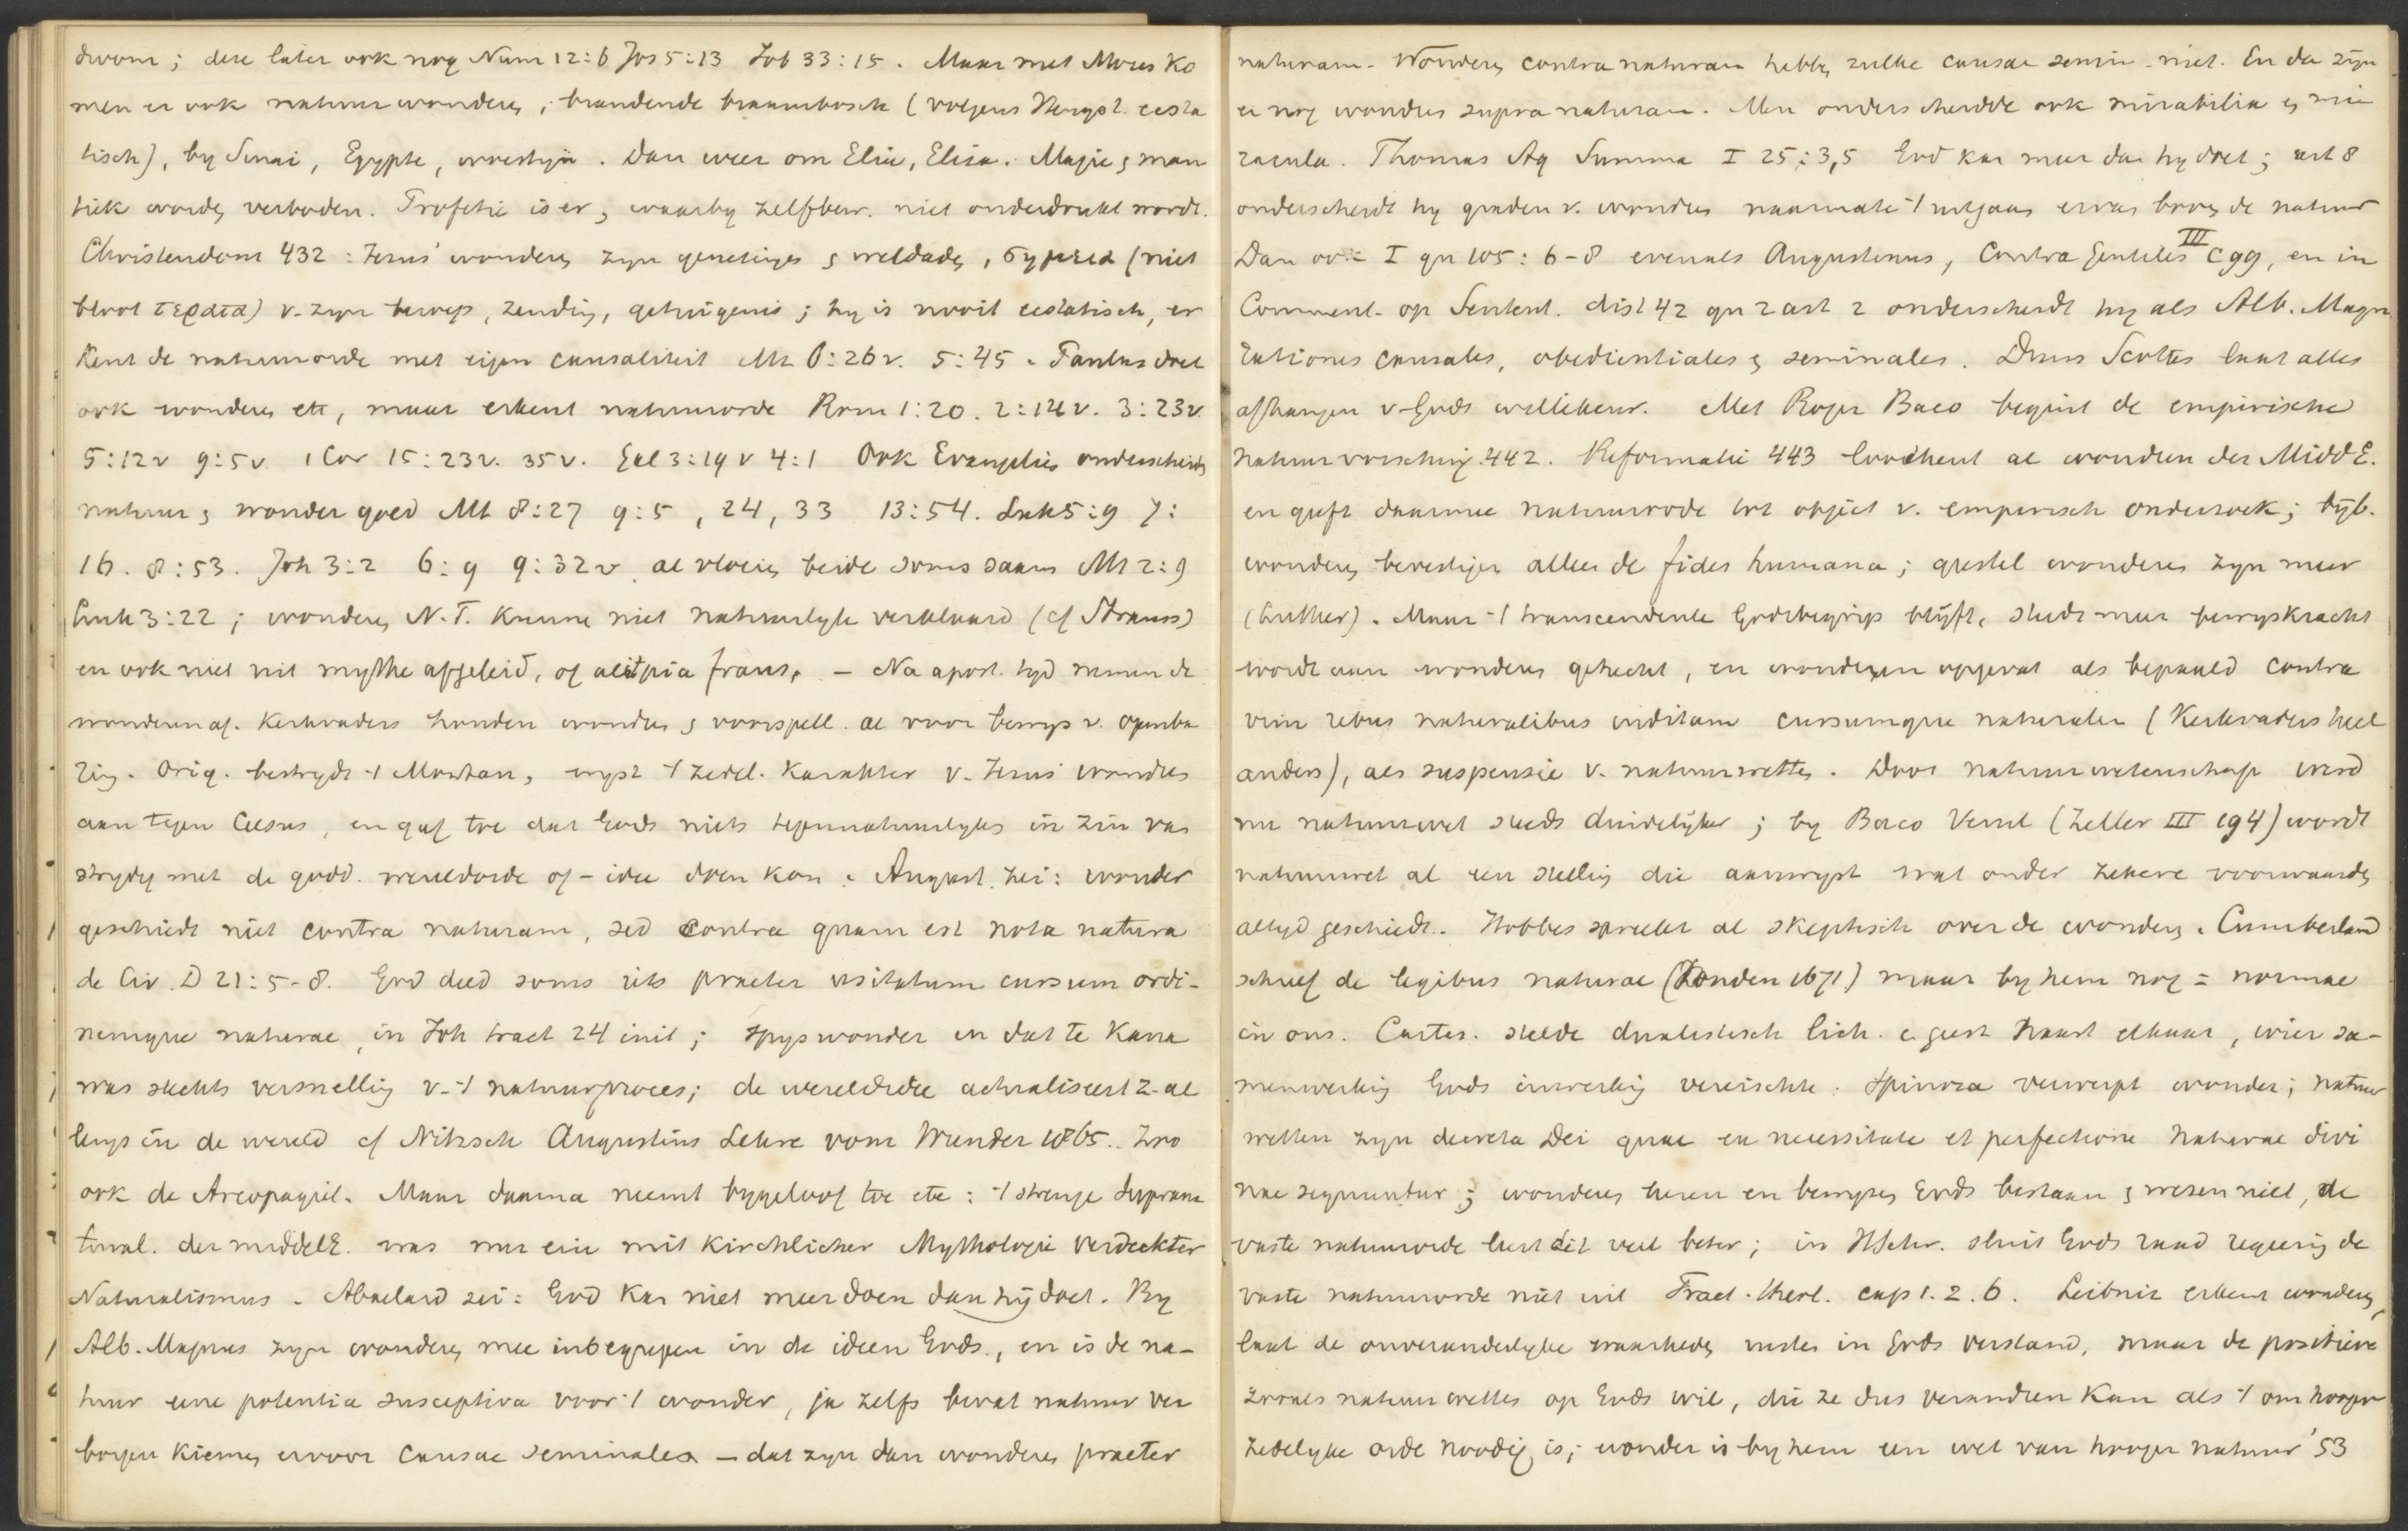 droom; deze later ook nog Num 12:6 Jos 5:13 Job 33:15. Maar met Mozes ko
men er ook natuurwonderen, brandende braambosch (volgens Hengst. ecsta
tisch), by Sinai, Egypte, woestijn. Dan weer om Elia, Elisa. Magie & man
tiek worden verboden. Profetie is er, waarby zelfbew. niet onderdrukt wordt.
Christendom 432: Jezus' wonderen zyn genezingen & weldaden, σημεια (niet
bloot τερατα) v. zyn beroep, zending, getuigenis; hy is nooit ecstatisch, er
kent de natuurorde met eigen causaliteit Mt 6:26v. 5:45. Paulus doet
ook wonderen etc, maar erkent natuurorde Rom 1:20. 2:14v. 3:23v.
5:12v 9:5v. 1 Cor 15:23v. 35v. Gal 3:19v 4:1 Ook Evangelies onderscheiden
natuur & wonder goed Mt 8:27 9:5, 24, 33 13:54. Luk 5:9 7:
16. 8:53. Joh 3:2 6:9 9:32v, al vloeien beide soms saam Mt 2:9
Luk 3:22; wonderen N.T. kunnen niet natuurlyk verklaard (cf Strauss)
en ook niet uit mythe afgeleid, of uit pia fraus. — Na apost. tyd namen de
wonderen af. Kerkvaders houden wonder & voorspell. al voor bewys v. openba
ring. Orig. bestrydt -t Montan, wyst -t zedel. karakter v. Jezus' wonders
aan tegen Celsus, en gaf toe dat God niets tegennatuurlyks in zin van
strydig met de godd. wereldorde of -idee doen kan. August. zei: wonder
geschiedt niet contra naturam, sed contra quam est nota natura
de Civ. D 21:5-8. God deed soms iets praeter usitatum cursum ordi-
nemque naturae, in Joh tract 24 init; spyswonder en dat te Kana
was slechts versnelling v. -t natuurproces; de wereldidee actualiseert z. al
lengs in de wereld cf Nitzsch Augustins Lehre vom Wunder 1865. Zoo
ook de Areopagiet. Maar daarna neemt bygeloof toe etc: -t strenge Suprana
tural. der middelE. was nur ein mit kirchlicher Mythologie verdeckter
Naturalismus. Abaelard zei: God kan niet meer doen dan hij doet. By
Alb. Magnus zyn wonderen mee inbegrepen in de ideen Gods, en is de na-
tuur eene potentia susceptiva voor -t wonder, ja zelfs bevat natuur ver
borgen kiemen ervoor causae seminales — dat zyn dan wonderen praeter
naturam. Wonderen contra naturam hebben zulke causae semin. niet. En dan zyn
er nog wonders supra naturam. Men onderscheidde ook mirabilia en mi
racula. Thomas Aq Summa I 25:3,5 God kan meer dan hy doet; art 8
onderscheidt hy graden v. wonders naarmate -t uitgaan ervan boven de natuur
Dan ook I qu 105: 6-8 evenals Augustinus, Contra Gentiles III c 99, en in
Comment. op Sentent. dist 42 qu 2 art 2 onderscheidt hy als Alb. Magn.
rationes causales, obedientiales & seminales. Duns Scotus laat alles
afhangen v. Gods willekeur. Met Roger Baco begint de empirische
natuurvorsching. 442. Reformatie 443 loochent al wonderen der MiddE.
en geeft daarmee natuurorde tot object v. empirisch onderzoek; byb.
wonderen bevestigen alleen de fides humana; geestel wonderen zyn meer
(Luther). Maar -t transcendente Godsbegrip blijft, steeds meer bewyskracht
wordt aan wonderen gehecht, en wonderen opgevat als bepaald contra
vim rebus naturalibus inditam cursumque naturalem (Kerkvaders heel
anders), als suspensie v. natuurwetten. Door natuurwetenschap werd
nu natuurwet steeds duidelijker; by Baco Verul (Zeller III 194) wordt
natuurwet al een stelling die aanwyst wat onder zekere voorwaarden
altyd geschiedt. Hobbes spreekt al skeptisch over de wonderen. Cumberland
schreef de legibus naturae (Londen 1671) maar by hem nog = normae
in ons. Cartes. stelde dualistisch lich. & geest naast elkaar, wier sa-
menwerking Gods inwerking vereischte. Spinoza verwerpt wonder; natuur
wetten zyn decreta Dei quae ex necessitate et perfectione naturae divi
nae sequuntur; wonderen leren en bewyzen Gods bestaan & wezen niet, de
vaste natuurorde leert dit veel beter; in HSchr. sluit Gods raad regering de
vaste natuurorde niet uit Tract. theol. cap 1. 2. 6. Leibniz erkent wonderen,
laat de onveranderlyke waarheden rusten in Gods verstand, maar de positieve
zooals natuurwetten op Gods wil, die ze dus veranderen kan als -t om hooger
zedelyke orde noodig is; wonder is by hem een wet van hooger natuur '53